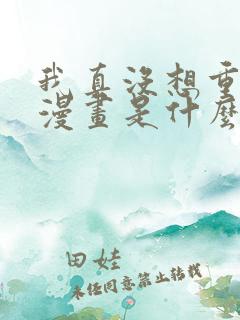 我真没想重
漫畫是什麼
田娃
未经同意禁止转载